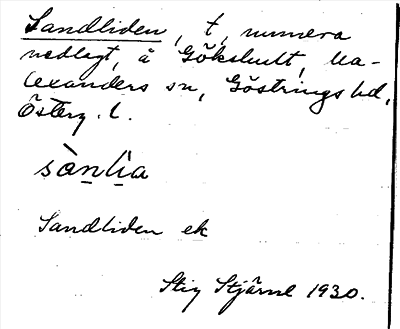 Sandliden, t, numera
nedlagt, å Gökshult, Ma-
lexanders sn, Göstrings hd,
Österg. l.
sànlìa
Sandliden ek
Stig Stjärne 1930.